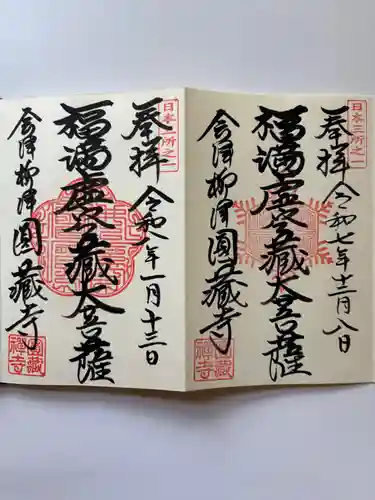 日本三所之一
奉拝
令和七年十二月八日
福満虚空藏大菩薩
会津柳津圓藏寺
圓藏禅寺
日本三所之一
奉拝
令和八年一月十三日
福満虚空藏大菩薩
会津柳津圓藏寺
圓藏禅寺